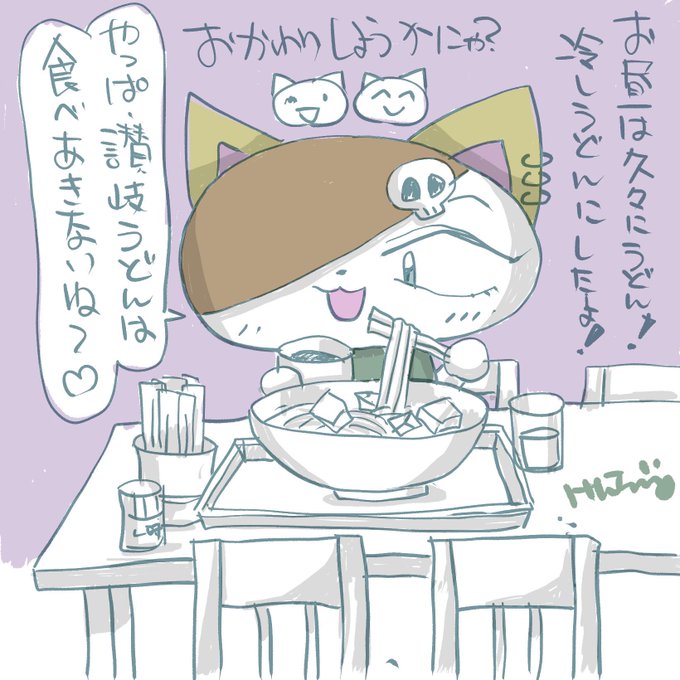 おかわりしようかにゃ?
お昼は久々にうどん!
冷しうどんにしたよ!
やっぱ讃岐うどんは
食べあきないね〜♡